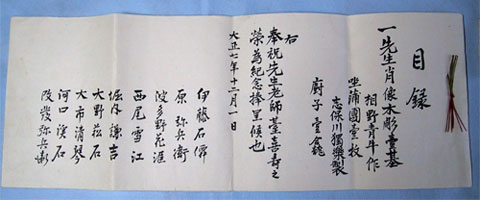 目録
一先生肖像木彫壹基
相野青牛作
坐蒲團壹枚
志保川獨樂製
廚子壹
右
奉祝先生老師臺喜寿之
榮為紀念捧呈候也
大正七年十二月一日
伊藤石
原弥兵衛
波多野花涯
西尾雪江
堀内謙吉
大野松石
大市清琴
河口渓石
改發弥兵衛